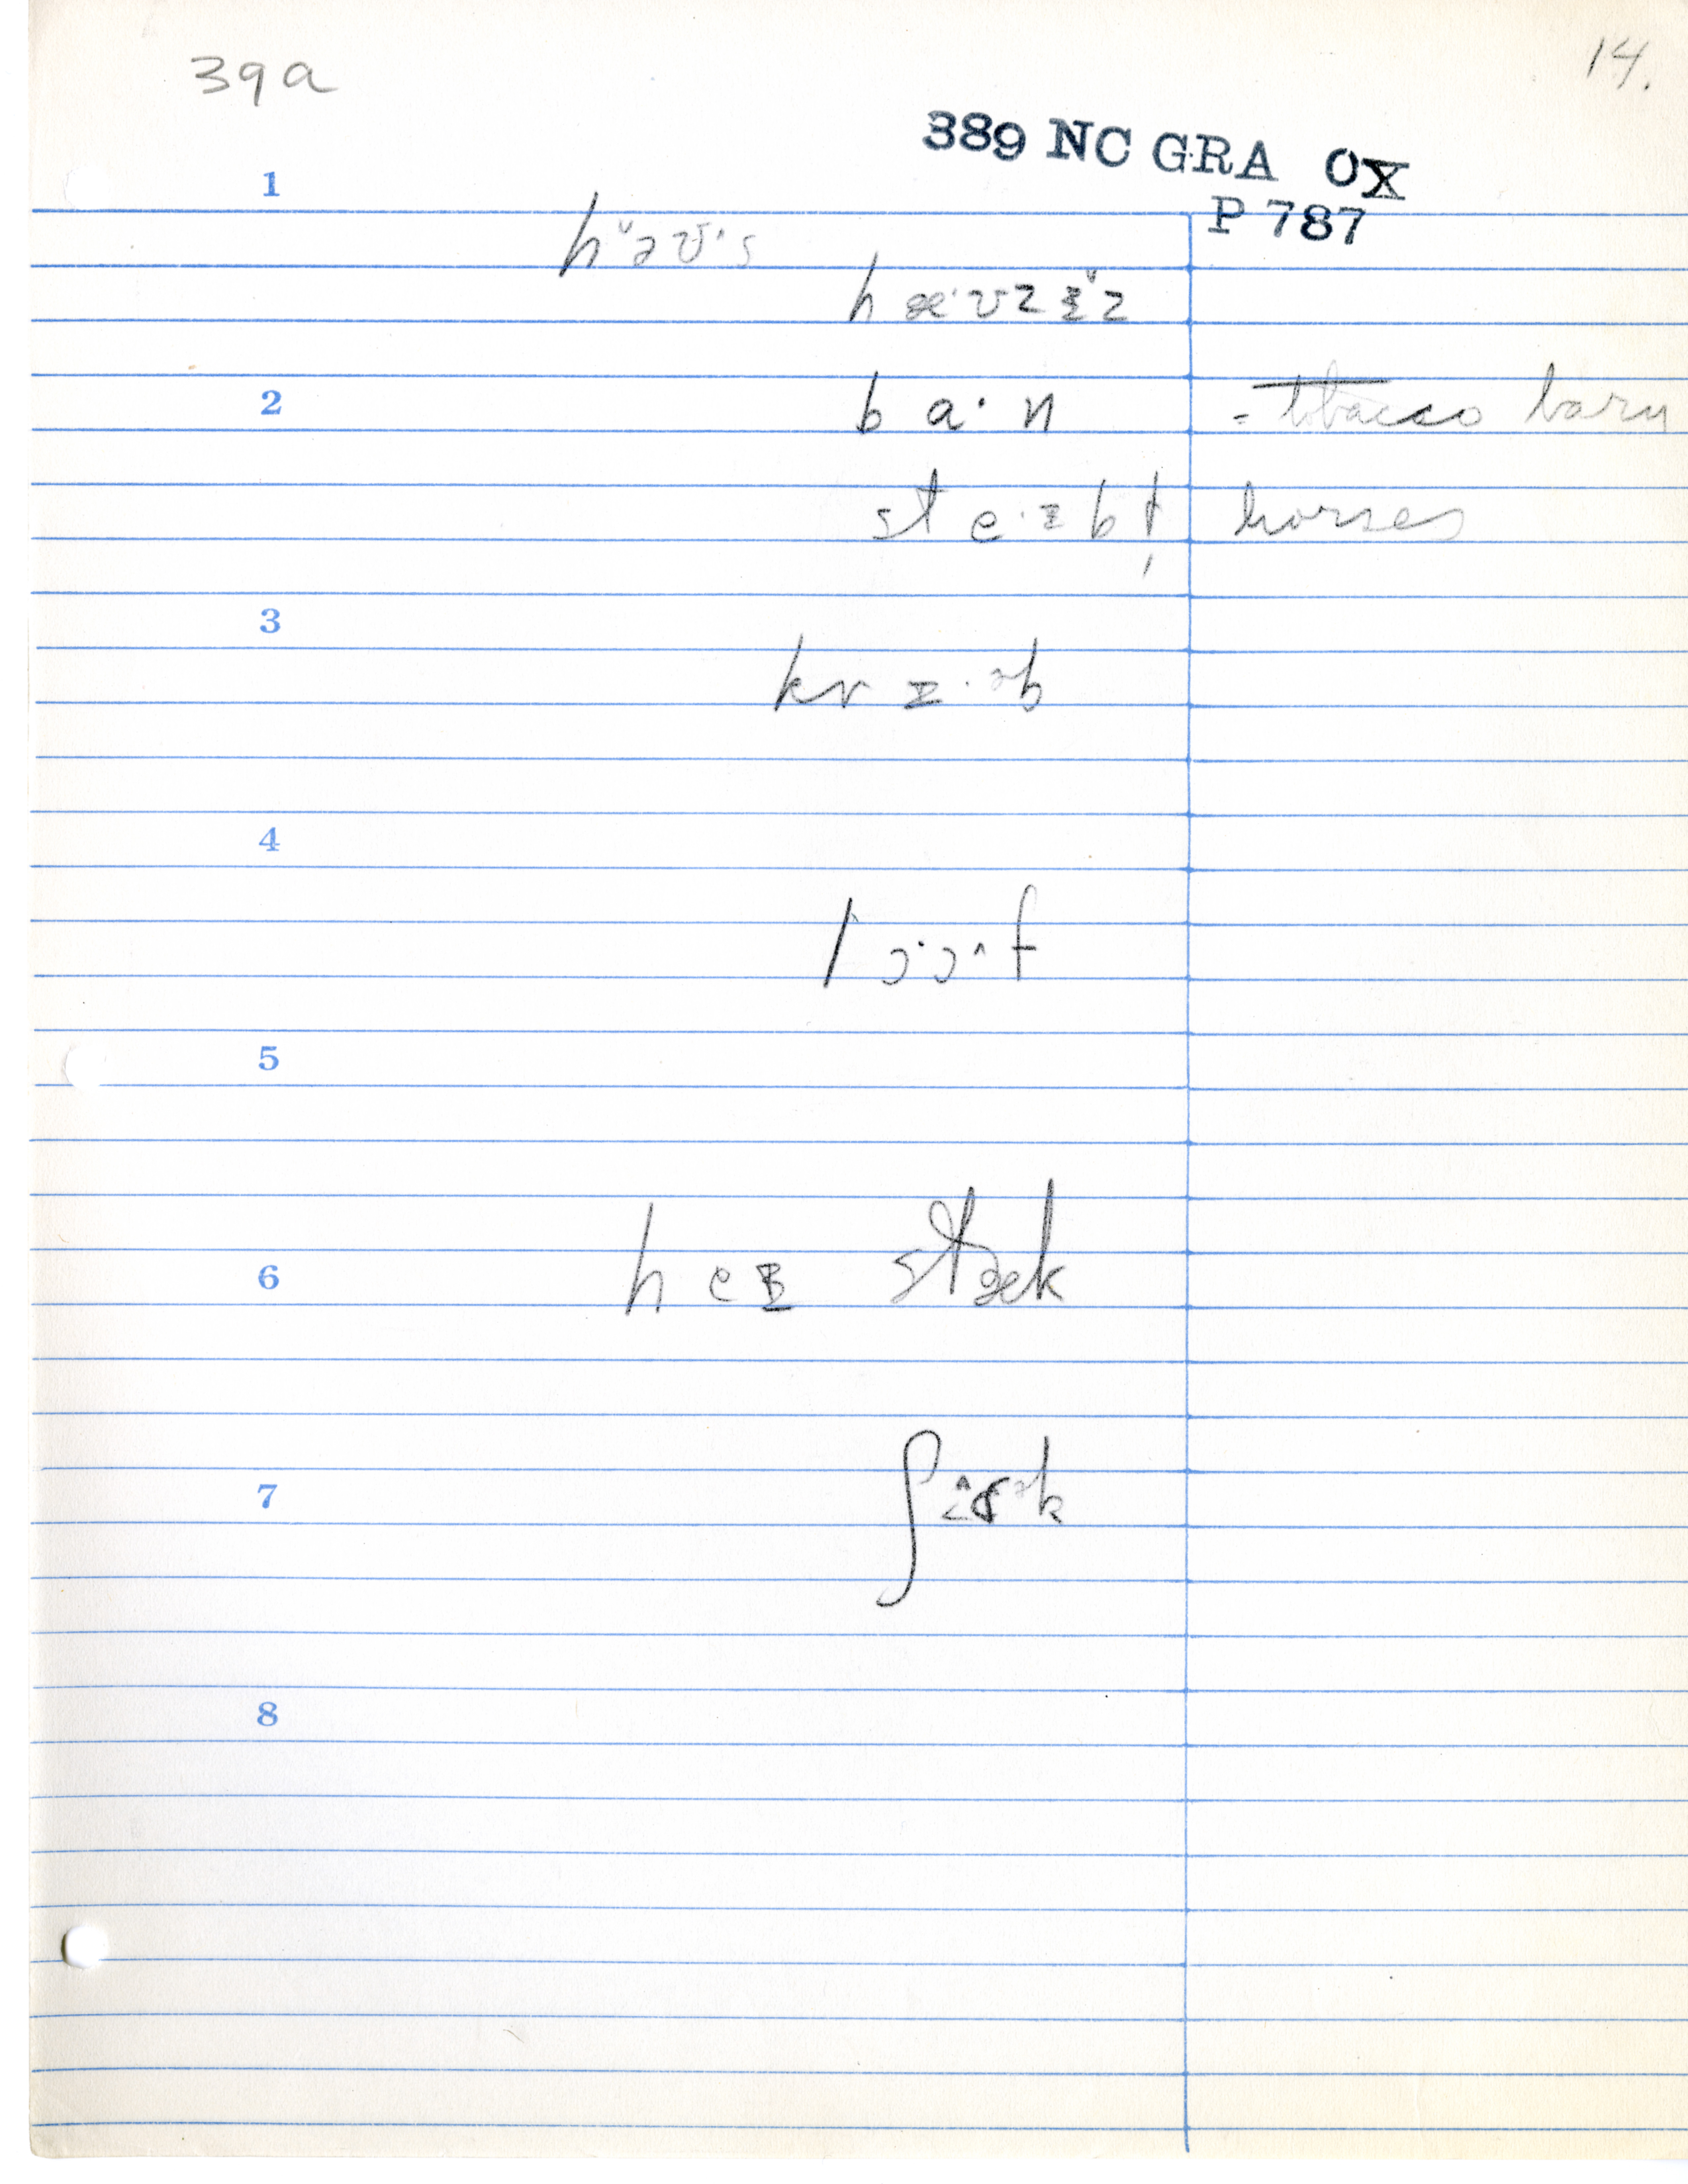 39a
14.
389 NC GRA OX
P 787
1
hæ·ʊzɪ̌z
2
ba·n
= tobacco barn
horses
3
krɪ·əb
4
lɔ·ɔ^f
5
6
heɪ stæk
7
8